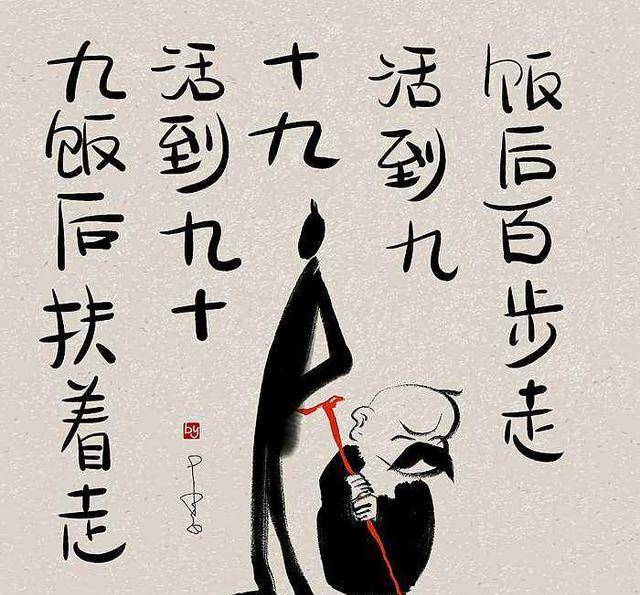 饭后百步走
活到九
十九
活到九十
九饭后扶着走
by